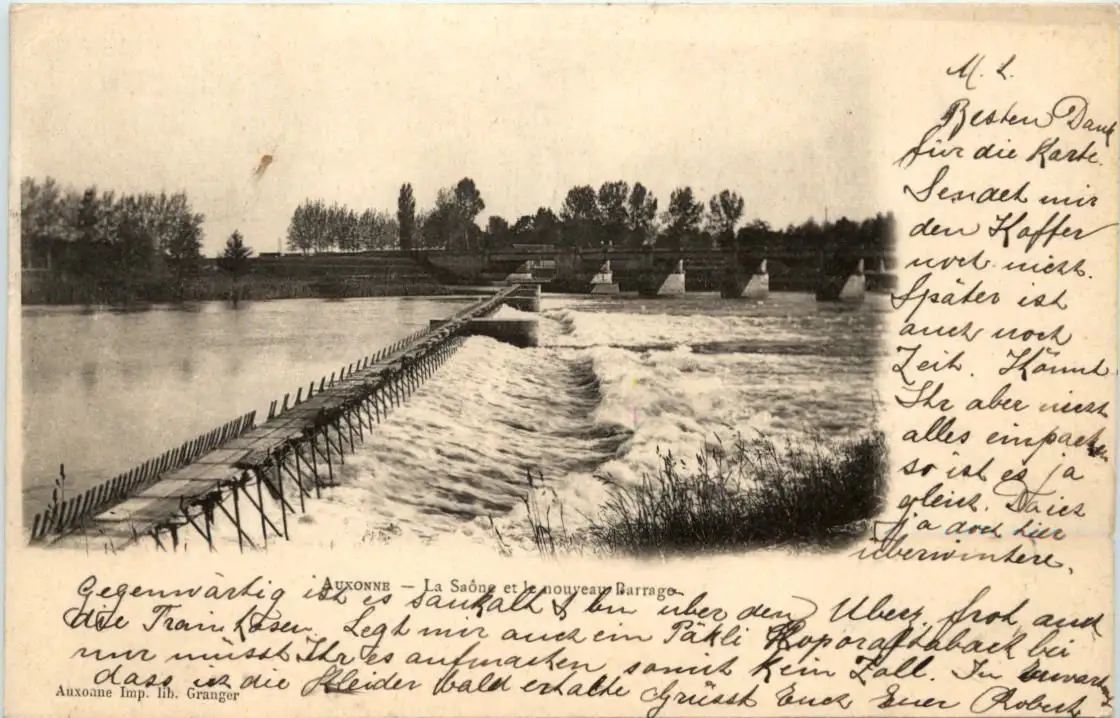 M. L.
Besten Dank
für die Karte.
Sendet mir
den Koffer
noch nicht.
Später ist
auch noch
Zeit. Könnt
Ihr aber nicht
alles einpacken
so ist es ja
gleich. Da ich
ja doch hier
überwintere.
AUXONNE — La Saône et le nouveau Barrage
Gegenwärtig ist es saukalt & bin über den Überz. froh and
die Train hosen. Legt mir auch ein Päkli Koporaltaback bei
nur müsst Ihr es aufmachen somit kein Zoll. In
dass ich die Kleider bald erhalte Grüsst Euch Euer Robert
Auxonne Imp. lib. Granger